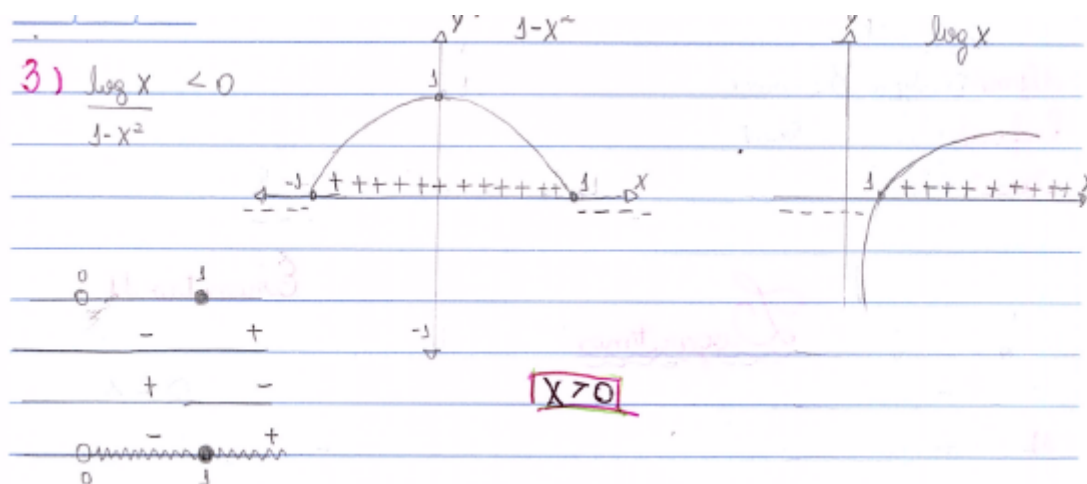 3) log x < 0
1-x²
y 1-x²
1
-1 + + + + + + + + + + + + 1 x
- - - - - - - -
-1
y log x
1 + + + + + + + + x
- - - - -
0 1
- +
+ -
- +
0 1
x > 0